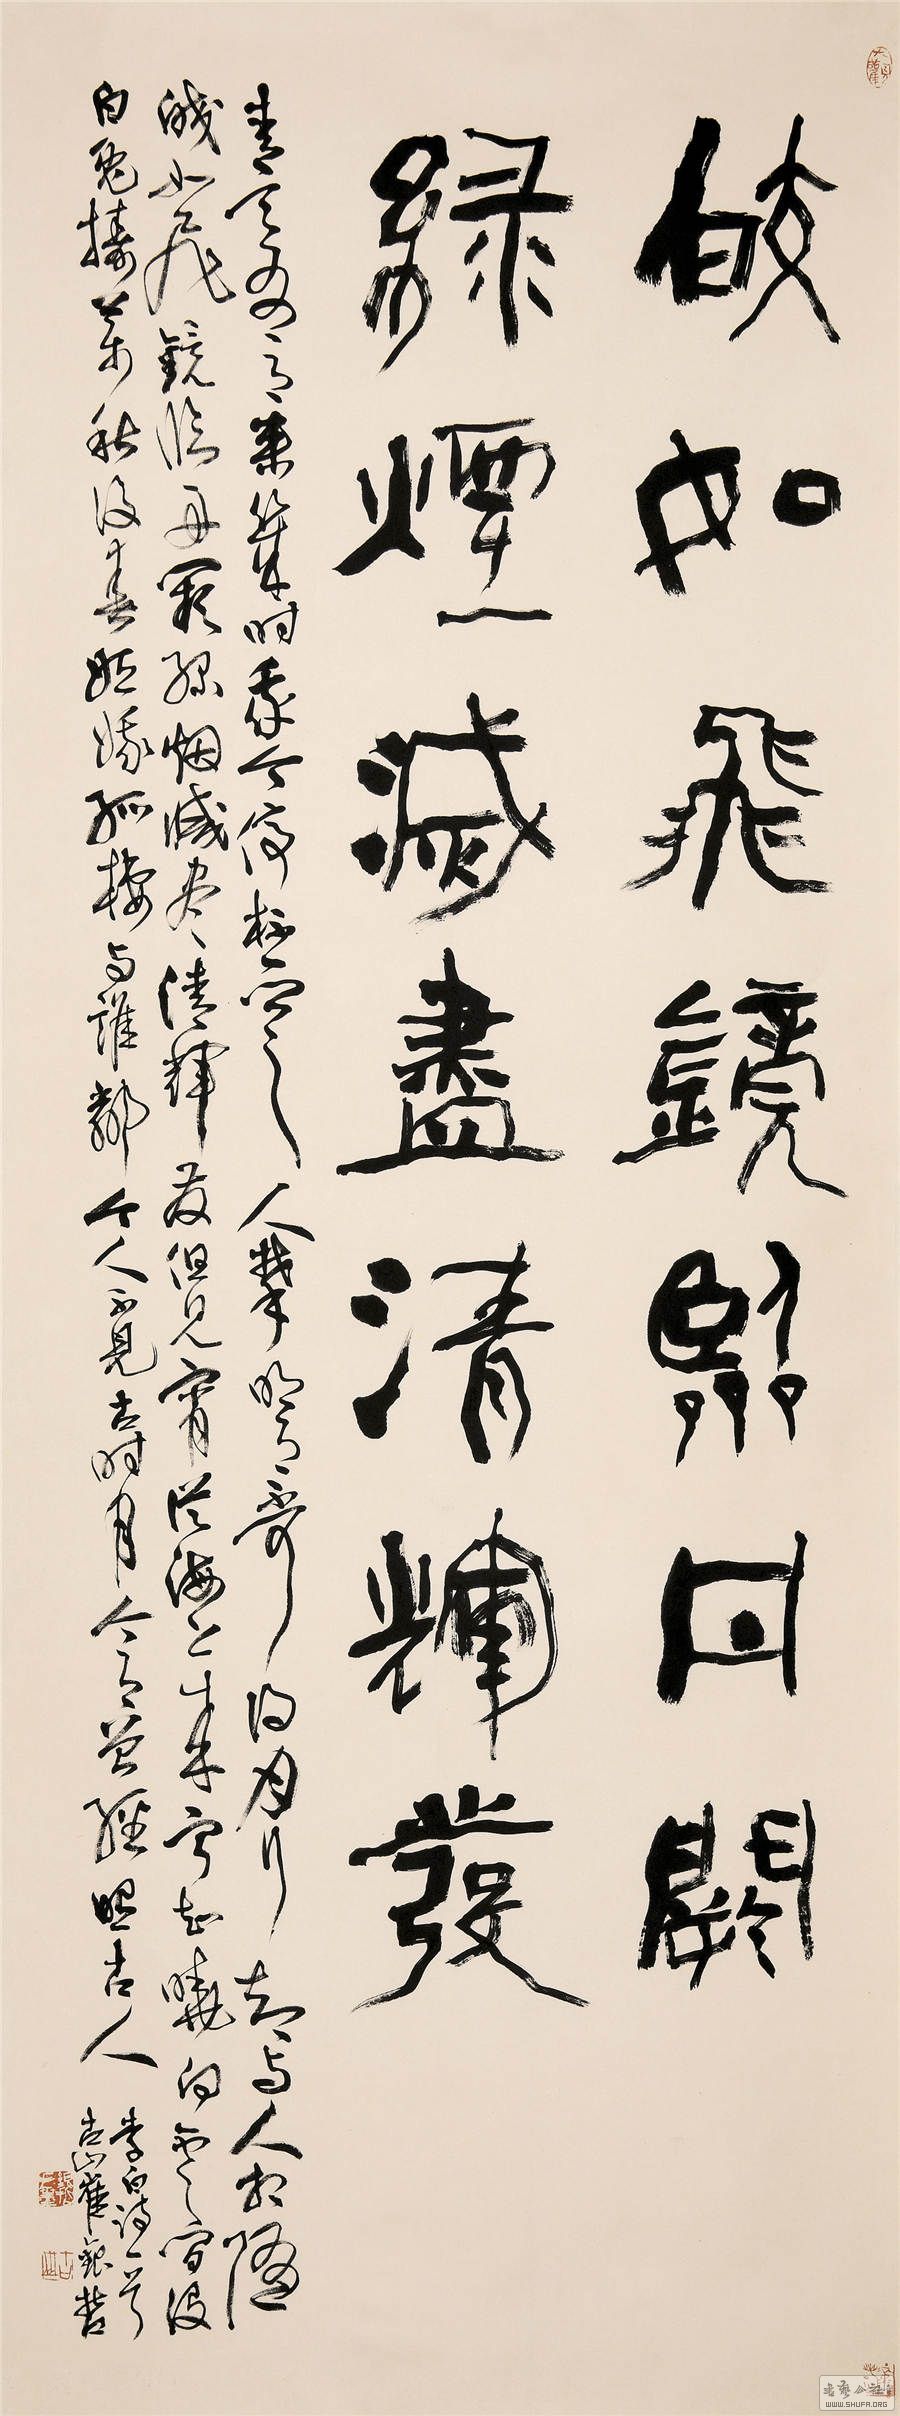 皎如飛鏡臨丹闕
綠煙滅盡清輝發
青天有月來幾時我今停杯一問之人攀明月不可得月行却與人相隨
皎如飛鏡臨丹闕綠烟滅盡清輝發但見宵從海上來寧知曉向雲間没
白兔搗藥秋復春姮娥孤棲與誰鄰今人不見古時月今月曾經照古人
李白詩一首
崔
書藝公社
WWW.SHUFA.ORG